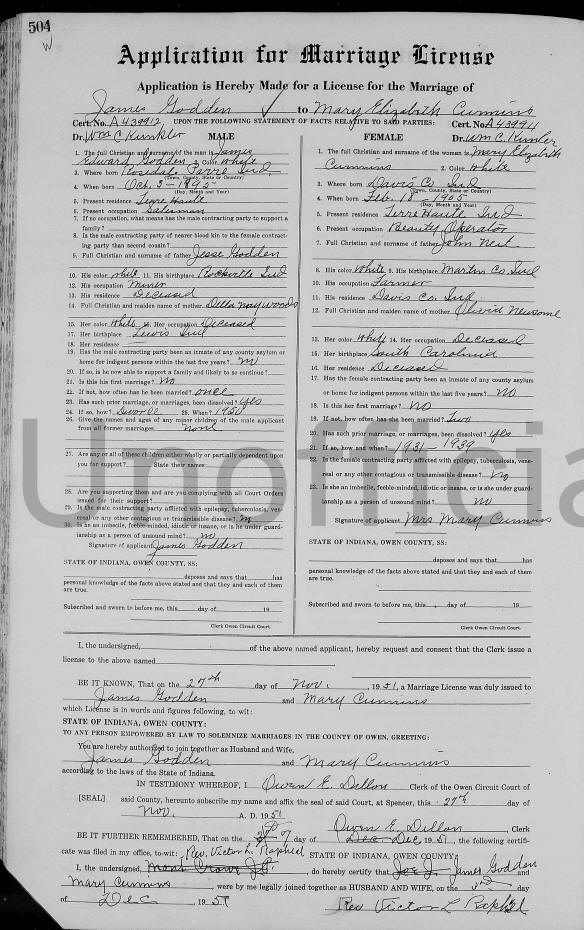 504
W
Application for Marriage License
Application is Hereby Made for a License for the Marriage of
James Godden to Mary Elizabeth Cummins
Cert. No. A439912 UPON THE FOLLOWING STATEMENT OF FACTS RELATIVE TO SAID PARTIES: Cert. No. A43991
Dr. Wm C Kunkler MALE
1. The full Christian and surname of the man is James
Edward Godden 2. Color White
3. Where born Rosedale Parke Ind.
(Town, County, State or Country)
4. When born Oct. 3 - 1895
(Day, Month and Year)
5. Present residence Terre Haute
6. Present occupation Salesman
7. If no occupation, what means has the male contracting party to support a
family?
8. Is the male contracting party of nearer blood kin to the female contract-
ing party than second cousin?
9. Full Christian and surname of father Jesse Godden
10. His color white 11. His birthplace Rockville Ind
12. His occupation Miner
13. His residence Deceased
14. Full Christian and maiden name of mother Della woods
15. Her color White 16. Her occupation Deceased
17. Her birthplace Lewis Ind
18. Her residence
19. Has the male contracting party been an inmate of any county asylum or
home for indigent persons within the last five years? No
20. If so, is he now able to support a family and likely to so continue?
21. Is this his first marriage? No
22. If not, how often has he been married? once
23. Has such prior marriage, or marriages, been dissolved? Yes
24. If so, how? Divorce 25. When? 1950
26. Give the names and ages of any minor children of the male applicant
from all former marriages. None
27. Are any or all of these children either wholly or partially dependent upon
you for support? State their names:
28. Are you supporting them and are you complying with all Court Orders
issued for their support?
29. Is the male contracting party afflicted with epilepsy, tuberculosis, vene-
real or any other contagious or transmissible disease? No
30. Is he an imbecile, feeble-minded, idiotic or insane, or is he under guard-
ianship as a person of unsound mind? No
Signature of applicant James Godden
STATE OF INDIANA, OWEN COUNTY, SS:
deposes and says that has
personal knowledge of the facts above stated and that they and each of them
are true.
Subscribed and sworn to before me, this day of 19
Clerk Owen Circuit Court.
FEMALE Dr. Wm C. Kunkler
1. The full Christian and surname of the woman is Mary Elizabeth
Cummins 2. Color White
3. Where born Davis Co Ind
(Town, County, State or Country)
4. When born Feb. 18 - 1905
(Day, Month and Year)
5. Present residence Terre Haute Ind
6. Present occupation Beauty Operator
7. Full Christian and surname of father John Neil
8. His color White 9. His birthplace Martin Co. Ind
10. His occupation Farmer
11. His residence Davis Co. Ind
12. Full Christian and maiden name of mother Newsome
13. Her color White 14. Her occupation Deceased
15. Her birthplace South Carolina
16. Her residence Deceased
17. Has the female contracting party been an inmate of any county asylum
or home for indigent persons within the last five years? No
18. Is this her first marriage? No
19. If not, how often has she been married? Two
20. Has such prior marriage, or marriages, been dissolved? Yes
21. If so, how and when? 1931 - 1939
22. Is the female contracting party afflicted with epilepsy, tuberculosis, vene-
real or any other contagious or transmissible disease? No
23. Is she an imbecile, feeble-minded, idiotic or insane, or is she under guard-
ianship as a person of unsound mind? No
Signature of applicant Mrs Mary Cummins
STATE OF INDIANA, OWEN COUNTY, SS:
deposes and says that has
personal knowledge of the facts above stated and that they and each of them
are true.
Subscribed and sworn to before me, this day of 19
Clerk Owen Circuit Court.
Unofficia
I, the undersigned, of the above named applicant, hereby request and consent that the Clerk issue a
license to the above named
BE IT KNOWN, That on the 27th day of Nov. , 1951, a Marriage License was duly issued to
James Godden and Mary Cummins
which License is in words and figures following, to wit:
STATE OF INDIANA, OWEN COUNTY:
TO ANY PERSON EMPOWERED BY LAW TO SOLEMNIZE MARRIAGES IN THE COUNTY OF OWEN, GREETING:
You are hereby authorized to join together as Husband and Wife,
James Godden and Mary Cummins
according to the laws of the State of Indiana.
IN TESTIMONY WHEREOF, I Owen E. Dillon Clerk of the Owen Circuit Court of
[SEAL] said County, hereunto subscribe my name and affix the seal of said Court, at Spencer, this 27th day of
Nov. A. D. 1951
Owen E. Dillon, Clerk
BE IT FURTHER REMEMBERED, That on the 7 day of Dec 1951, the following certifi-
cate was filed in my office, to-wit: Rev. Victor L. Raphael STATE OF INDIANA, OWEN COUNTY
I, the undersigned, do hereby certify that James Godden and
Mary Cummins, were by me legally joined together as HUSBAND AND WIFE, on the day
of Dec 1951
Rev Victor L Raphael